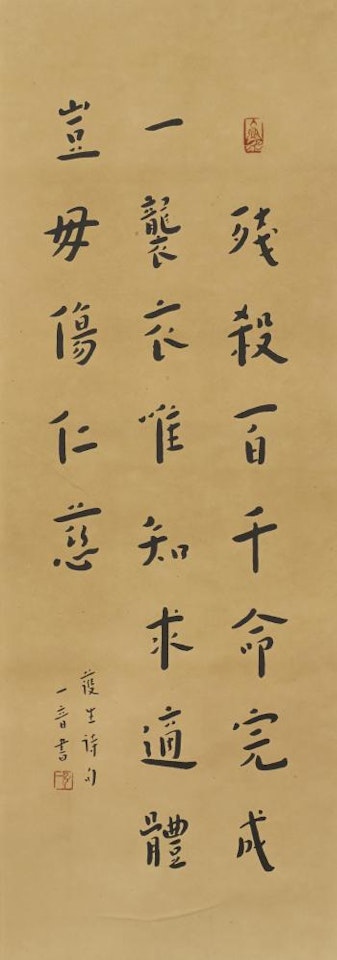 殘殺百千命完成
一襲衣唯知求適體
豈毋傷仁慈
護生詩句
一音書